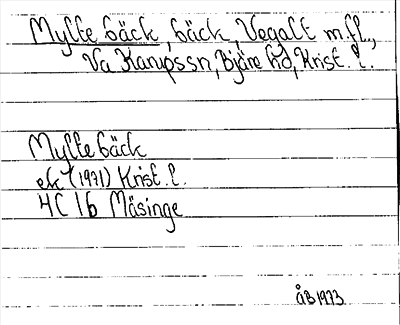 Mylte bäck, bäck, Vegalt m.fl.,
Va Karupssn, Bjäre hd, Krist. l.
Mylte bäck
ek (1971) Krist. l.
4C 1b Mäsinge
ÅB 1973